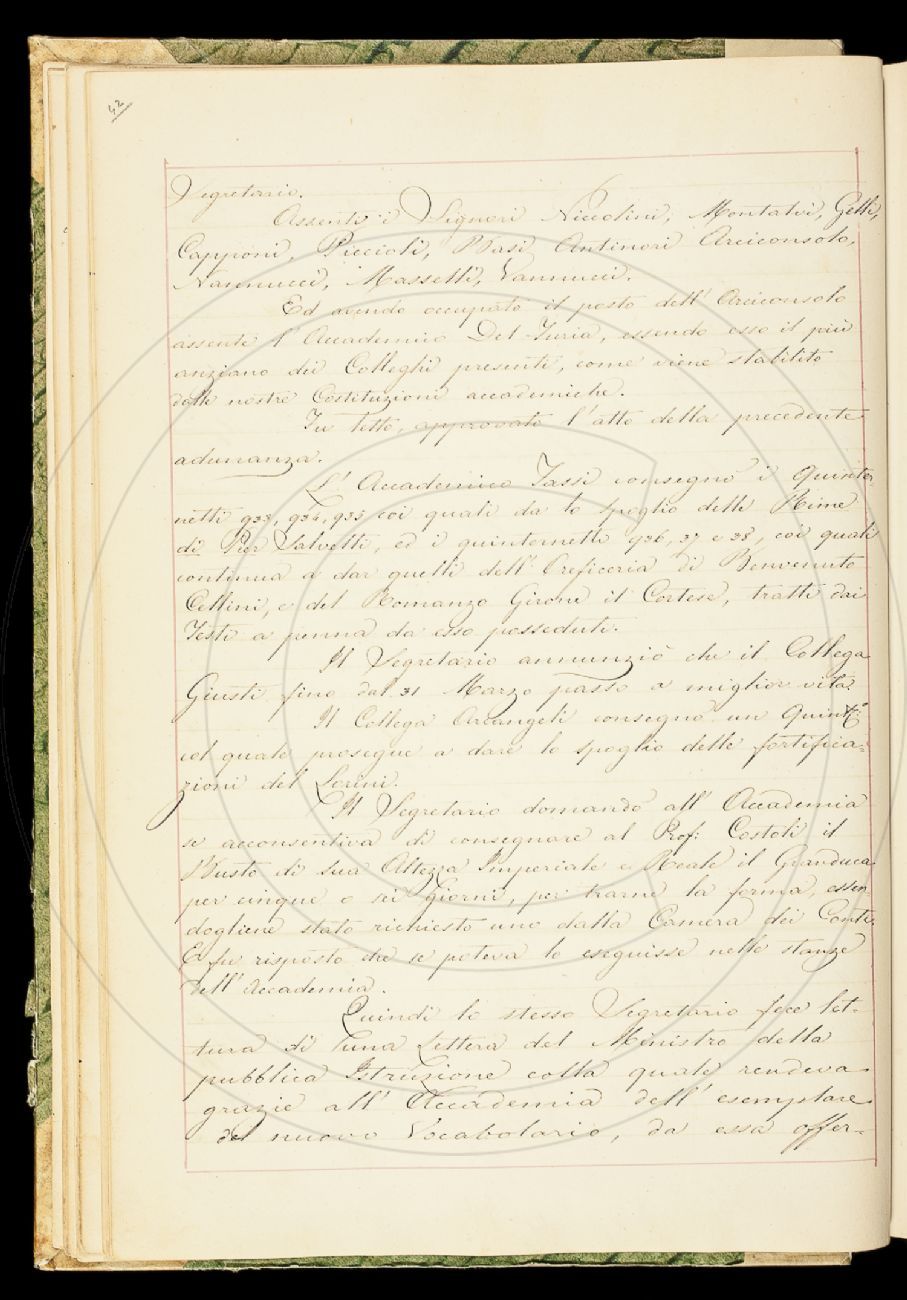 42
Segretario.
Assenti i Signori Niccolini, Montalvi, Gelli,
Capponi, Piccioli, Basi, Antinori Arciconsolo,
Nannucci, Masselli, Vannucci.
Ed avendo occupato il posto dell' Arciconsolo
assente l' Accademico Del-Furia, essendo esso il più
anziano dei Colleghi presenti, come viene stabilito
dalle nostre Costituzioni accademiche.
Fu letto, approvato l' atto della precedente
adunanza.
L' Accademico Tassi consegnò i quinter-
netti 933, 934, 935 coi quali da lo spoglio delle Rime
di Pier Salvetti, ed i quinternetti 936, 37 e 38, coi quali
continua a dar quelli dell' Oreficeria di Benvenuto
Cellini, e del Romanzo Girone il Cortese, tratti dai
Testi a penna da esso posseduti.
Il Segretario annunziò che il Collega
Giusti fino dal 31 Marzo passò a miglior vita.
Il Collega Arcangeli consegnò un Quint:º
col quale prosegue a dare lo spoglio delle fortifica-
zioni del Lorini.
Il Segretario domandò all' Accademia
se acconsentiva di consegnare al Prof: Costoli il
Busto di Sua Altezza Imperiale e Reale il Granduca
per cinque o sei Giorni, per trarne la forma, essen-
dogliene stato richiesto uno dalla Camera dei Conti.
E fu risposto che se poteva lo eseguisse nelle stanze
dell' Accademia.
Quindi lo stesso Segretario fece let-
tura di una Lettera del Ministro della
pubblica Istruzione colla quale rendeva
grazie all' Accademia dell' esemplare
del nuovo Vocabolario, da essa offer-